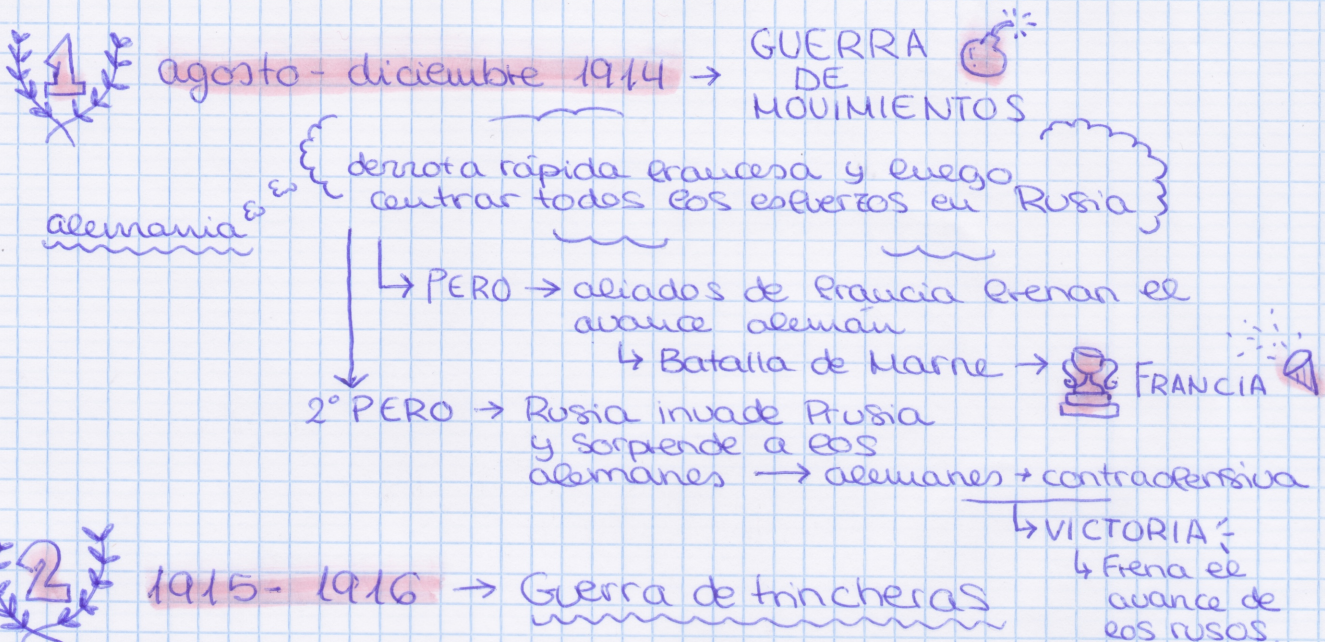 1 agosto - diciembre 1914 → GUERRA
DE
MOVIMIENTOS
derrota rápida francesa y luego
centrar todos los esfuerzos en Rusia
alemania
↳ PERO → aliados de francia frenan el
avance alemán
↳ Batalla de Marne → FRANCIA
2º PERO → Rusia invade Prusia
y sorprende a los
alemanes → alemanes → contraofensiva
↳ VICTORIA
↳ Frena el
avance de
los rusos
2 1915 - 1916 → Guerra de trincheras